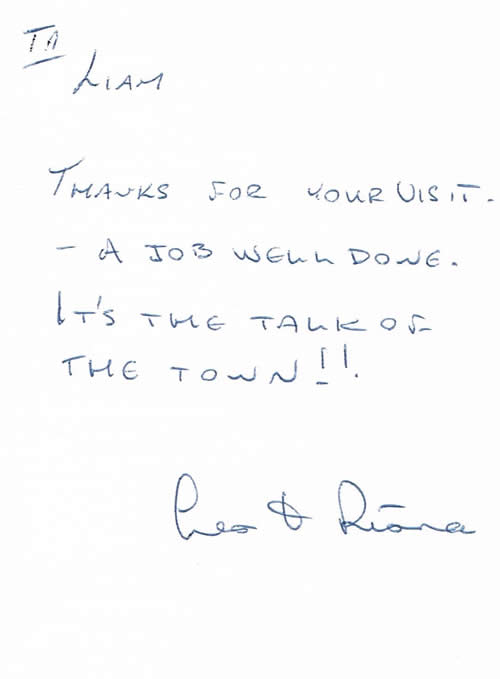 TO
LIAM
THANKS FOR YOUR VISIT.
- A JOB WELL DONE.
IT'S THE TALK OF
THE TOWN!!
& Riona